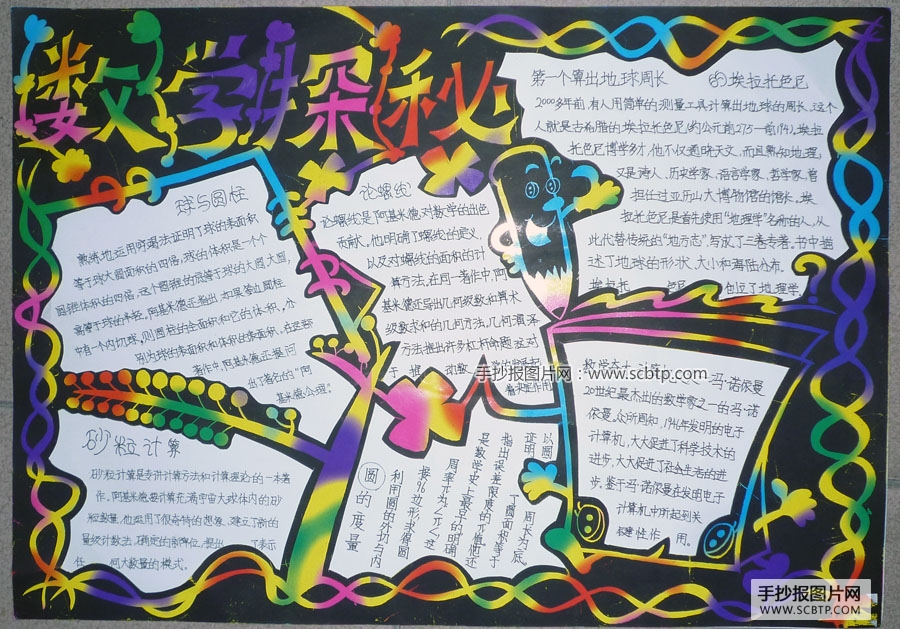 数学探秘
球与圆柱
熟练地运用穷竭法证明了球的表面积
等于球大圆面积的四倍,球的体积是一个
圆锥体积的四倍,这个圆锥的底等于球的大圆,
高等于球的半径,阿基米德还指出,如果等边圆柱
中有一个内切球,则圆柱的全面积和它的体积,分
别为球的表面积和体积的
著作中,阿基米德还提
出了著名的"阿
基米德公理"。
砂粒计算
砂粒计算是专讲计算方法和计算理论的一本著
作,阿基米德要计算充满宇宙大球体内的砂
粒数量,他运用了很奇特的想象,建立了新的
量级计数法,确定的新单位,提出
了表示
任
何大数量的模式。
论螺线
论螺线是阿基米德对数学的出色
贡献,他明确了螺线的定义,
以及对螺线的面积的计
算方法,在同一著作中,阿
基米德还导出几何级数和算术
级数求和的几何方法,
圆的度量
利用圆的外切与内
接96边形求得圆
周率π为
是数学史上最早的明确
指出误差限度的π值他还
证明
以圆
周长为底
第一个算出地球周长
的埃拉托色尼
2000多年前,有人用简单的测量工具计算出地球的周长,这个
人就是古希腊的埃拉托色尼(约公元前275—前194)。埃拉
托色尼博学多才,他不仅通晓天文,而且熟知地理,
又是诗人、历史学家、语言学家、哲学家、曾
担任过亚历山大博物馆的馆长。埃
拉托色尼是首先使用"地理学"名称的人,从
此代替传统的"地方志",写成了三卷专著。书中描
述了地球的形状、大小和海陆分布。
埃拉托
色尼
地理学
冯·诺依曼
20世纪最杰出的数学家之一的冯·诺
依曼,众所周知,1946年发明的电子
计算机,大大促进了科学技术的
进步,大大促进了社会生活的进
步,鉴于冯·诺依曼在发明电子
计算机中所起到关
键性作
用。
手抄报图片网:www.scbtp.com
手抄报图片网
WWW.SCBTP.COM